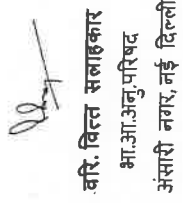 वरि. वित्त सलाहकार
भा.आ.अनु.परिषद
अंसारी नगर, नई दिल्ली